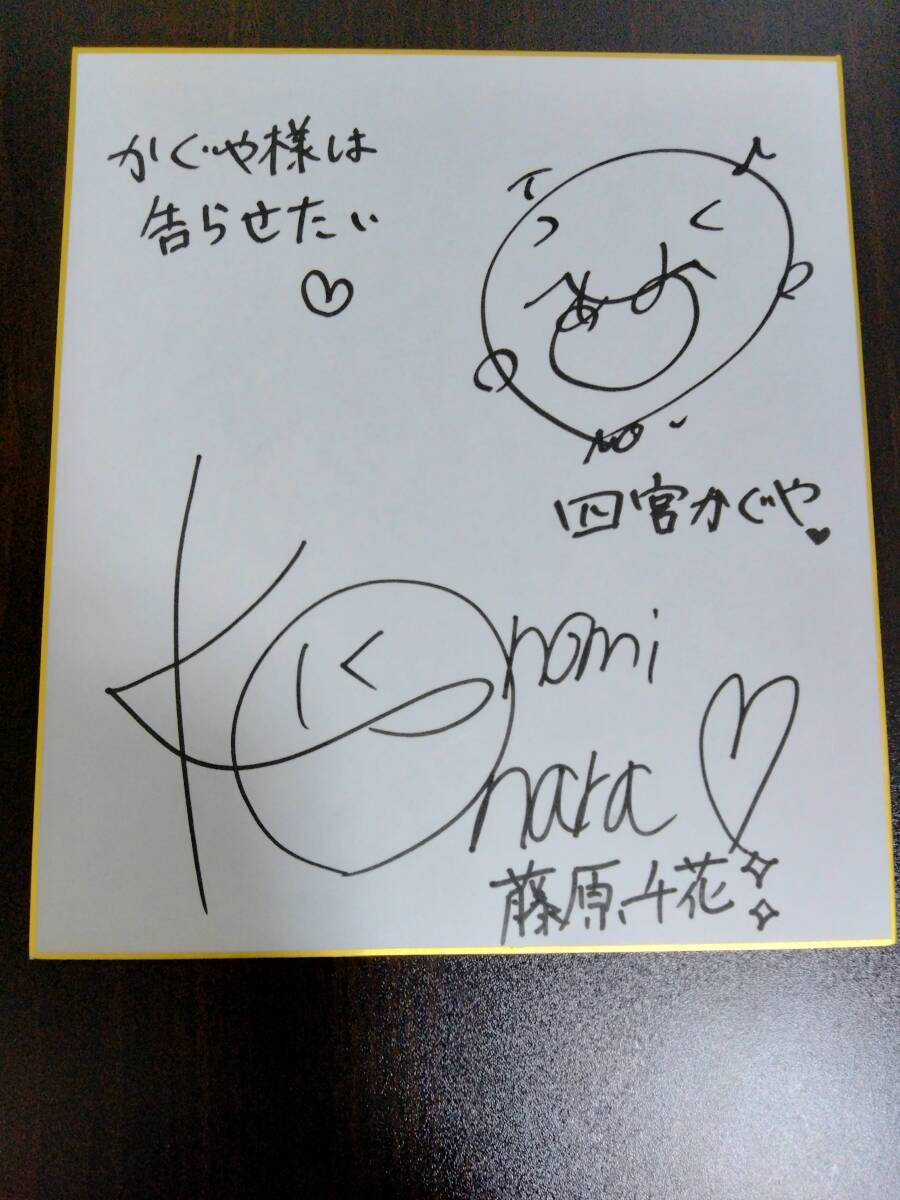 かぐや様は
告らせたい
四宮かぐや
Konomi
Kohara
藤原千花